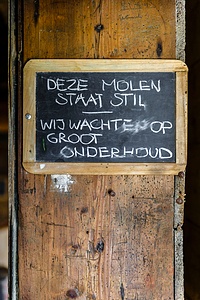 DEZE MOLEN
STAAT STIL
WIJ WACHTEN OP
GROOT
ONDERHOUD